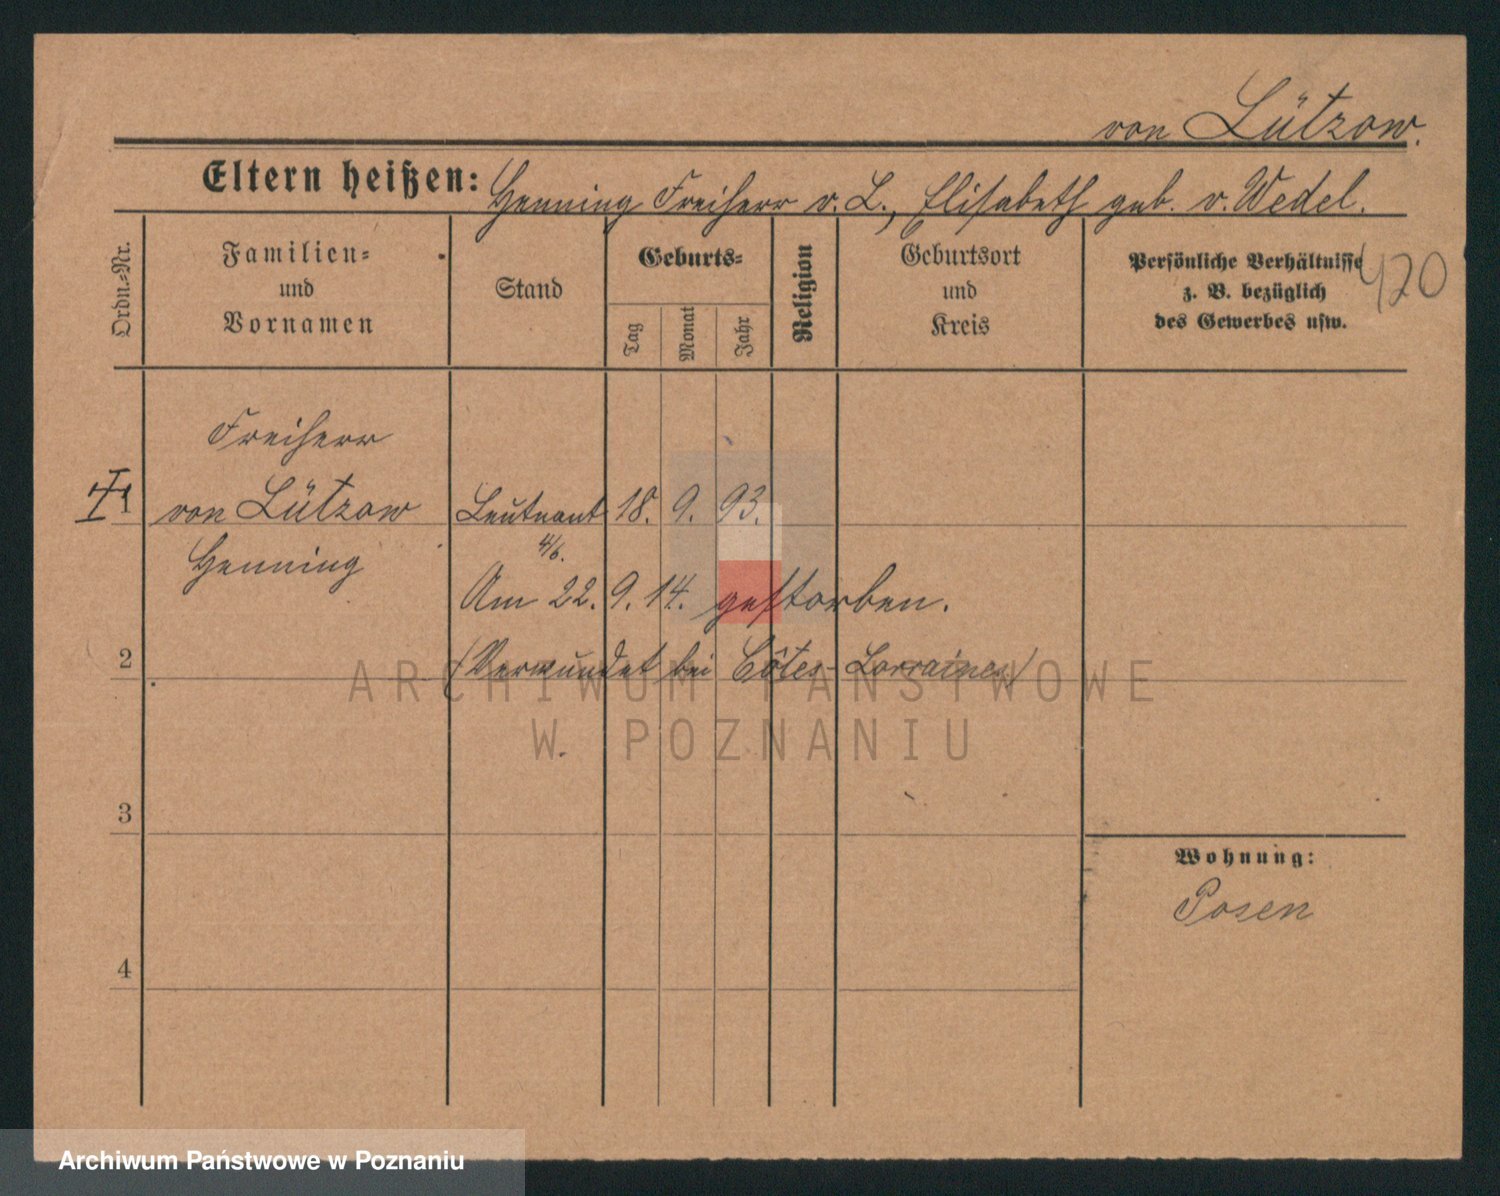 von Lützow.
Eltern heißen: Henning Freiherr v. L., Elisabeth geb. v. Wedel.
Ordn.-Nr.
Familien-
und
Vornamen
Stand
Geburts-
Tag
Monat
Jahr
Religion
Geburtsort
und
Kreis
Persönliche Verhältnisse
z. B. bezüglich
des Gewerbes usw.
420
Freiherr
1 von Lützow Leutnant 18. 9. 93.
Henning 4/6.
Am 22. 9. 14. gestorben.
2 (Verwundet bei Côtes-Lorraines)
ARCHIWUM PAŃSTWOWE
W POZNANIU
3
Wohnung:
Posen
4
Archiwum Państwowe w Poznaniu